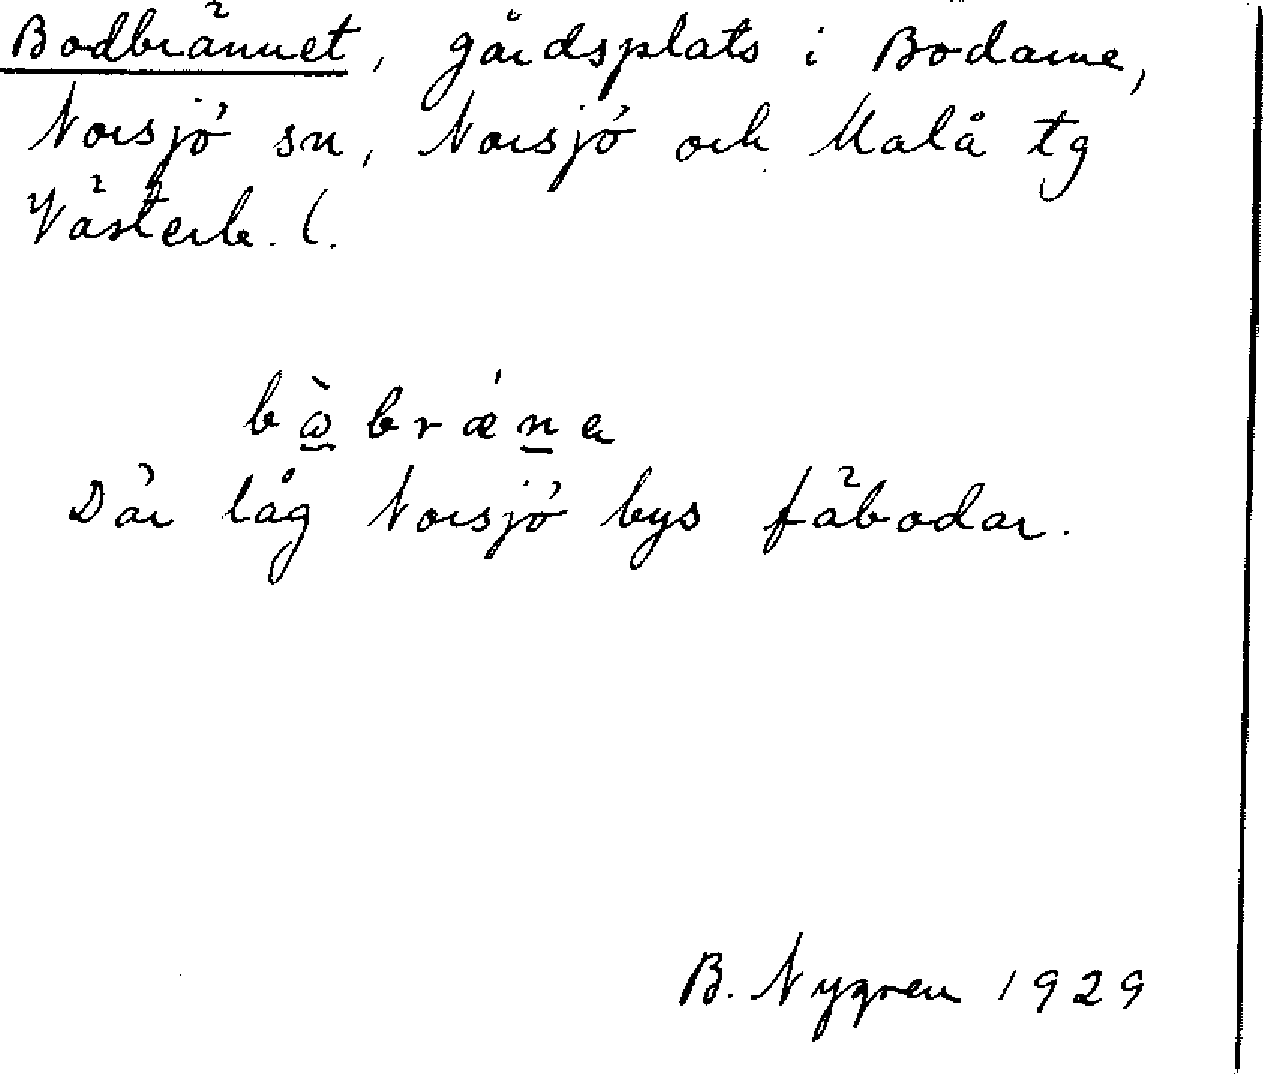 Bodbrännet, gårdsplats i Bodarne,
Norsjö sn, Norsjö och Malå tg
Västerb. l.
bàbrǽna
Där låg Norsjö bys fäbodar.
B. Nygren 1929